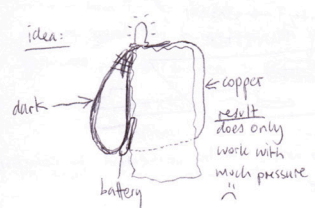 idea:
copper
dark
result
does only
work with
much pressure
battery